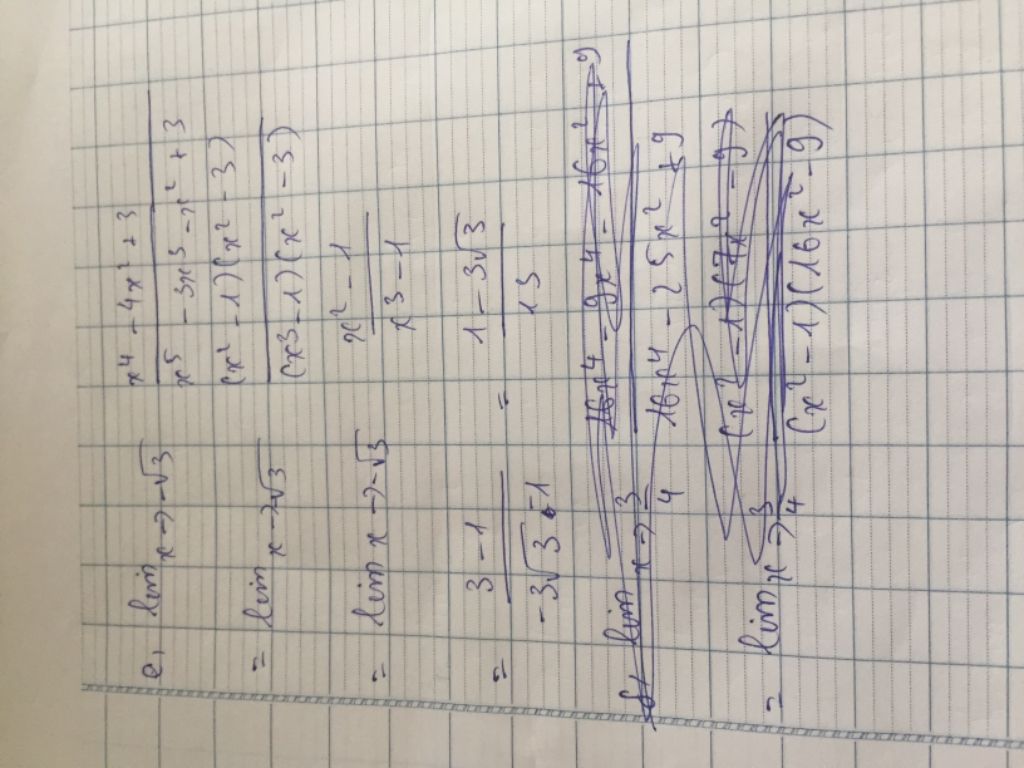 e, lim x→-√3 (x⁴ - 4x² + 3)/(x⁵ - 3x3 - x² + 3)
= lim x→-√3 ((x² - 1)(x² - 3))/((x3 - 1)(x² - 3))
= lim x→-√3 (x² - 1)/(x3 - 1)
= (3 - 1)/(-3√3 - 1) = (1 - 3√3)/13
lim x→3/4 (16x⁴ - 9x⁴ - 16x² + 9)/(16x⁴ - 25x² + 9)
= lim x→3/4 ((x² - 1)(7x² - 9))/((x² - 1)(16x² - 9))